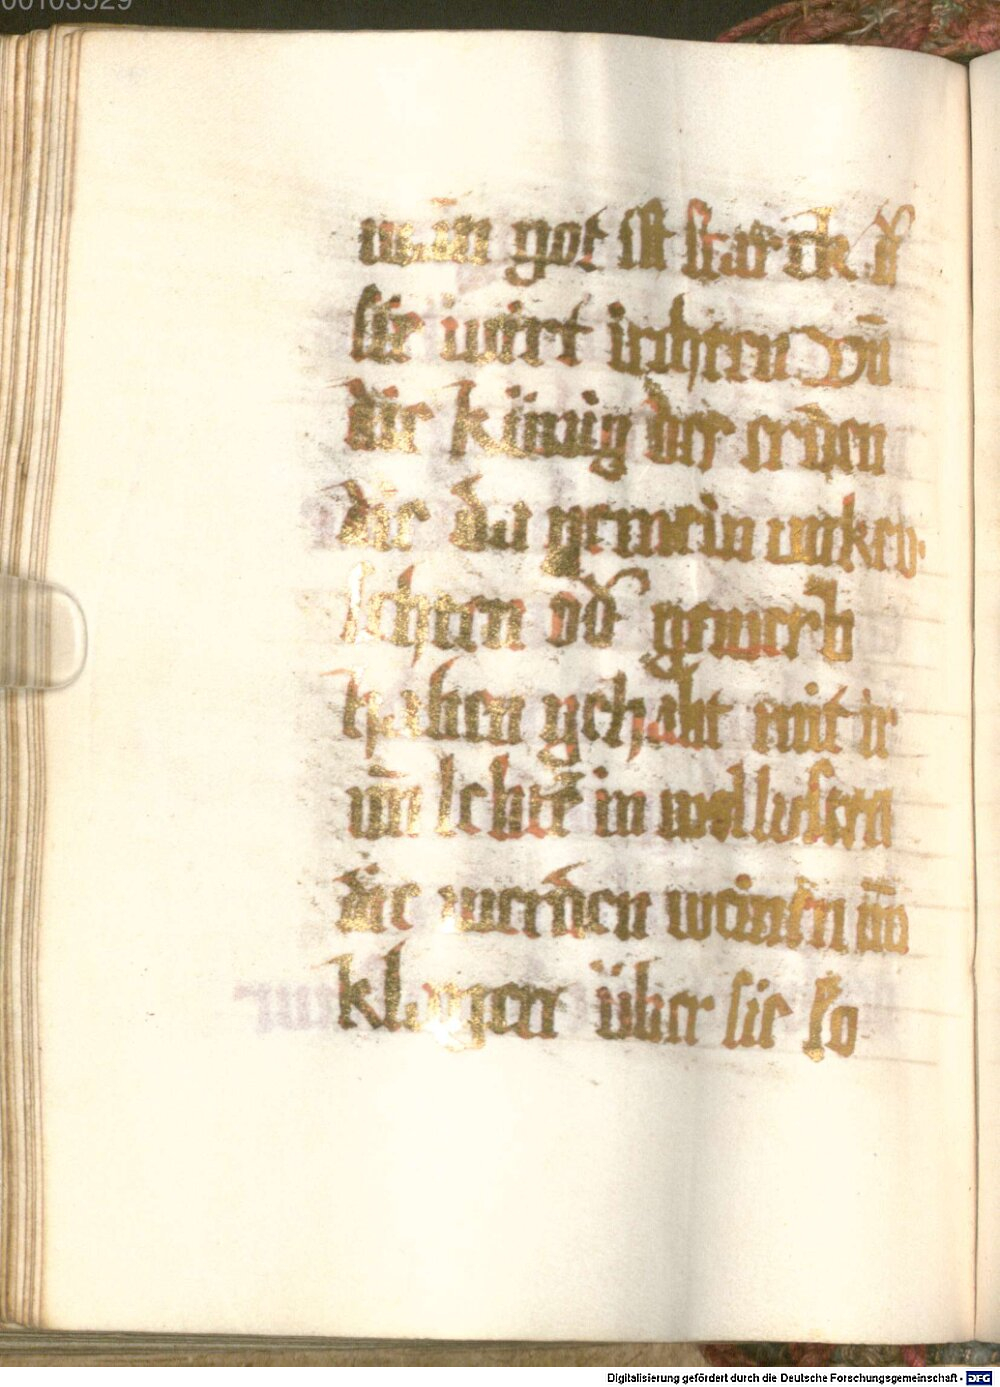 00103529
wān got ist starck d͛
sie wirt vrthern Vn̄
die künig der erden
die da gemein vnkeu-
schen od͛ gewerb
haben gehabt mit ir
vn̄ lebtē in wollusten
die werden weinen vn̄
klagen über sie so
Digitalisierung gefördert durch die Deutsche Forschungsgemeinschaft - DFG